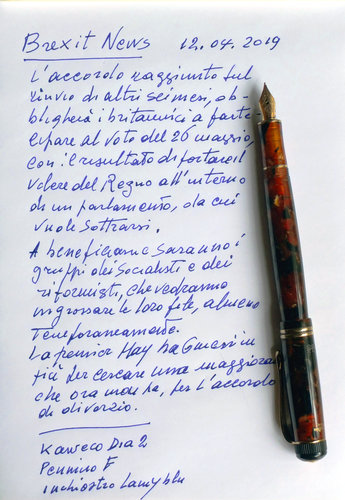 Brexit News 12.04.2019
L'accordo raggiunto sul
rinvio di altri sei mesi, ob-
bligherà i britannici a parte-
cipare al voto del 26 maggio,
con il risultato di portare il
volere del Regno all'interno
di un parlamento, da cui
vuole sottrarsi.
A beneficiarne saranno i
gruppi dei Socialisti e dei
riformisti, che vedranno
ingrossare le loro file, almeno
temporaneamente.
La premier May ha 6 mesi in
più per cercare una maggioranza
che ora non ha, per l'accordo
di divorzio.
Kaweco Dia 2
Pennino F
Inchiostro Lamy blu